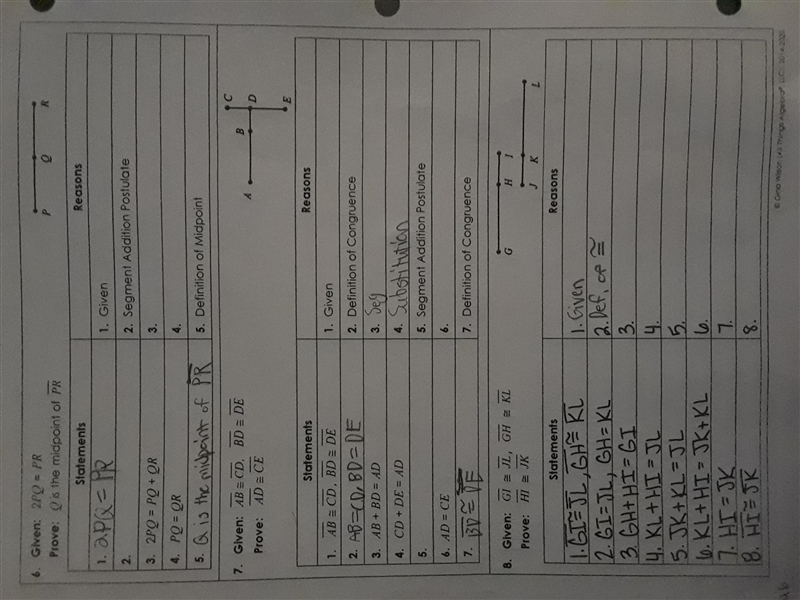 6. Given: 2PQ = PR
Prove: Q is the midpoint of PR
P Q R
Statements Reasons
1. 2PQ = PR 1. Given
2. 2. Segment Addition Postulate
3. 2PQ = PQ + QR 3.
4. PQ = QR 4.
5. Q is the midpoint of PR 5. Definition of Midpoint
7. Given: AB ≅ CD, BD ≅ DE
Prove: AD ≅ CE
A B C D E
Statements Reasons
1. AB ≅ CD, BD ≅ DE 1. Given
2. AB=CD, BD=DE 2. Definition of Congruence
3. AB + BD = AD 3. Seg
4. CD + DE = AD 4. Substitution
5. 5. Segment Addition Postulate
6. AD = CE 6.
7. BD ≅ DE 7. Definition of Congruence
8. Given: GI ≅ JL, GH ≅ KL
Prove: HI ≅ JK
G H I J K L
Statements Reasons
1. GI ≅ JL, GH ≅ KL 1. Given
2. GI = JL, GH = KL 2. Def. of ≅
3. GH + HI = GI 3.
4. KL + HI = JL 4.
5. JK + KL = JL 5.
6. KL + HI = JK + KL 6.
7. HI = JK 7.
8. HI ≅ JK 8.
© Gina Wilson (All Things Algebra®, LLC), 2014-2020